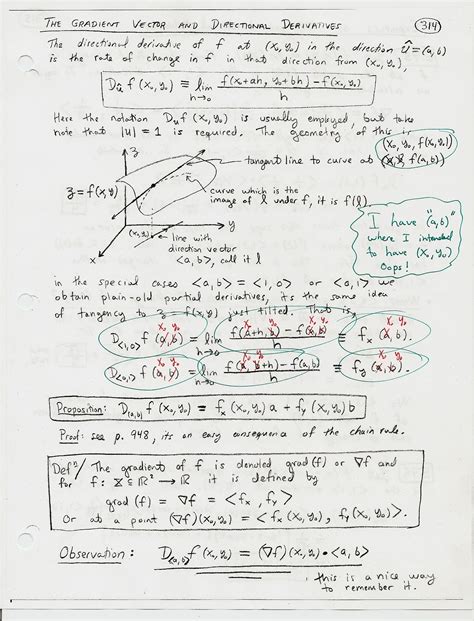 THE GRADIENT VECTOR AND DIRECTIONAL DERIVATIVES
314
The directional derivative of f at (x₀, y₀) in the direction û = ⟨a, b⟩
is the rate of change in f in that direction from (x₀, y₀),
D_û f(x₀, y₀) ≡ lim_{h→0} (f(x₀+ah, y₀+bh) − f(x₀, y₀)) / h
Here the notation D_u f(x₀, y₀) is usually employed, but take
note that |u| = 1 is required. The geometry of this is
(x₀, y₀, f(x₀, y₀))
z
tangent line to curve at (a, b, f(a, b))
z = f(x, y)
curve which is the
image of l under f, it is f(l).
y
(x₀, y₀)
line with
direction vector
⟨a, b⟩, call it l
x
I have "(a, b)"
where I intended
to have (x₀, y₀)
Oops!
in the special cases ⟨a, b⟩ = ⟨1, 0⟩ or ⟨0, 1⟩ we
obtain plain-old partial derivatives, its the same idea
of tangency to z = f(x, y) just tilted. That is,
x₀ y₀ x₀ y₀ x₀ y₀ x₀ y₀
D_⟨1,0⟩ f(a, b) = lim_{h→0} (f(a+h, b) − f(a, b)) / h ≡ f_x (a, b).
x₀ y₀ x₀ y₀
D_⟨0,1⟩ f(a, b) = lim_{h→0} (f(a, b+h) − f(a, b)) / h ≡ f_y (a, b).
Proposition: D_⟨a,b⟩ f(x₀, y₀) = f_x(x₀, y₀) a + f_y(x₀, y₀) b
Proof: see p. 948, its an easy consequence of the chain rule.
Defⁿ/ The gradient of f is denoted grad(f) or ∇f and
for f: ⊆ ℝ² → ℝ it is defined by
grad(f) = ∇f = ⟨f_x, f_y⟩
Or at a point (∇f)(x₀, y₀) = ⟨f_x(x₀, y₀), f_y(x₀, y₀)⟩.
Observation: D_⟨a,b⟩ f(x₀, y₀) = (∇f)(x₀, y₀) • ⟨a, b⟩
this is a nice way
to remember it.